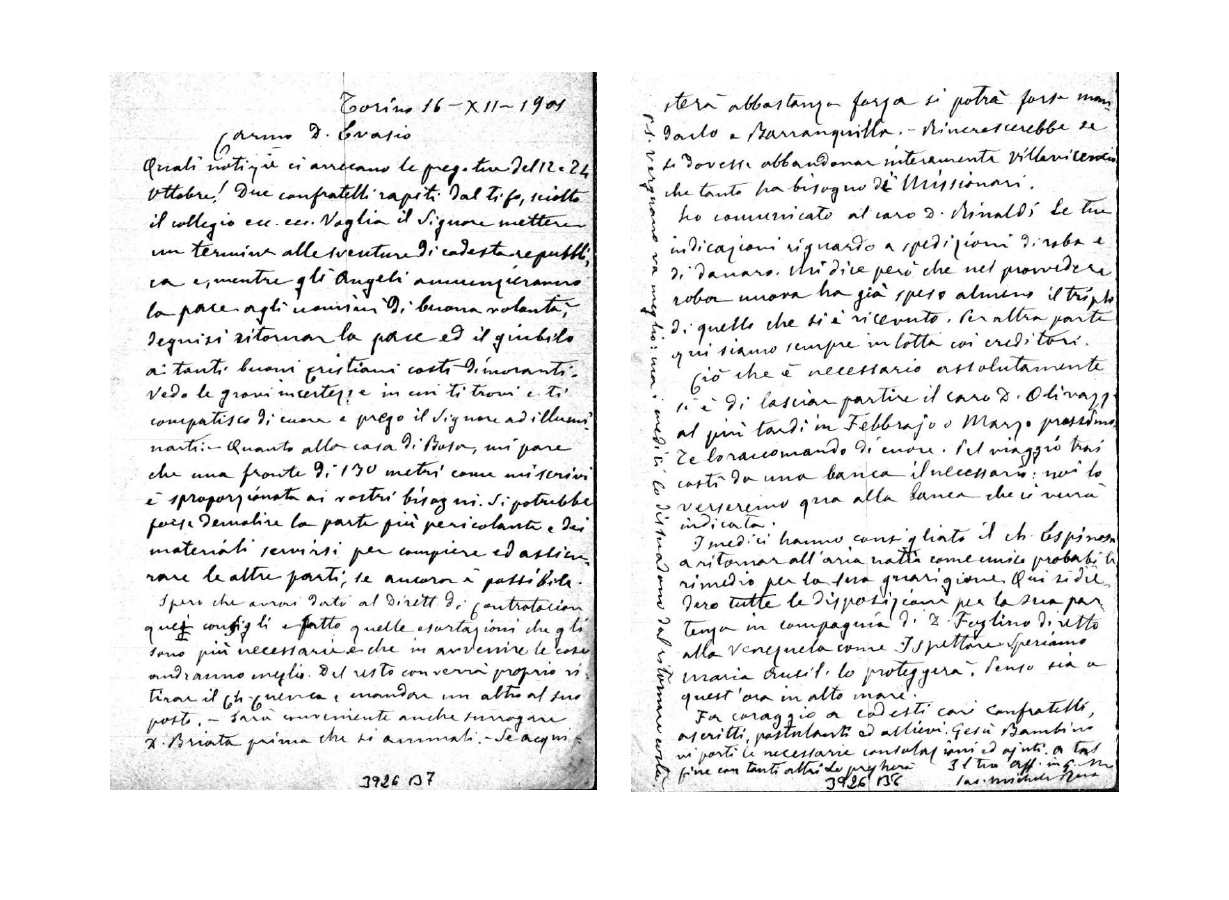 Torino 16-XII-1901
Carmo D. Evasio
Quali notizie ci arrecano le pregte tue del 12 e 24
Ottobre! Due confratelli rapiti dal tifo, sciolto
il collegio ecc. ecc. Voglia il Signore mettere
un termine alle sventure di codesta repubbli,
ca e, mentre gli Angeli annunzieranno
la pace agli uomini di buona volontà,
degnisi ritornar la pace ed il giubilo
ai tanti buoni cristiani costì dimoranti.
Vedo le gravi incertezze in cui ti trovi e ti
compatisco di cuore e prego il Signore ad illumi
narti. - Quanto alla casa di Bosa, mi pare
che una fronte di 130 metri come mi scrivi
è sproporzionata ai vostri bisogni. Si potrebbe
forse demolire la parte più pericolante e dei
materiali servirsi per compiere ed assicu
rare le altre parti, se ancora è possibile.
Spero che avrai dato al Dirett. di Contratacion
quei consigli e fatto quelle esortazioni che gli
sono più necessarie e che in avvenire le cose
andranno meglio. Del resto converrà proprio ri,
tirar il Ch. Cuenca e mandar un altro al suo
posto. - Sarà conveniente anche surrogare
D. Briata prima che si ammali. - Se acqui -
3926 B7
sterà abbastanza forza si potrà forse man
darlo a Barranquilla. - Rincrescerebbe se
si dovesse abbandonar interamente Villavicencio
che tanto ha bisogno di Missionari.
Ho comunicato al caro D. Rinaldi le tue
indicazioni riguardo a spedizioni di roba e
di danaro. Mi dice però che nel provvedere
roba nuova ha già speso almeno il triplo
di quello che si è ricevuto. Per altra parte
qui siamo sempre in lotta coi creditori.
Ciò che è necessario assolutamente
si è di lasciar partire il caro D. Olivazzo
al più tardi in Febbrajo o Marzo prossimo.
Te lo raccomando di cuore. Pel viaggio trai
costì da una banca il necessario; noi lo
verseremo qua alla banca che ci verrà
indicata.
I medici hanno consigliato il ch. Espinosa
a ritornar all'aria natia come unico probabile
rimedio per la sua guarigione. Qui si die,
dero tutte le disposizioni per la sua par
tenza in compagnia di D. Foglino diretto
alla Venezuela come Ispettore. Speriamo
Maria Ausil. lo proteggerà. Penso sia a
quest'ora in alto mare.
Fa coraggio a codesti cari confratelli,
ascritti, postulanti ed allievi. Gesù Bambino
vi porti le necessarie consolazioni ed ajuti. a tal
fine con tanti altri Lo pregherà Il tuo aff. in G. e M.
Sac. Michele Rua
3926 B8
P.S. Vergnano va meglio; ma i medici lo dissuadono dal ritornare costì.